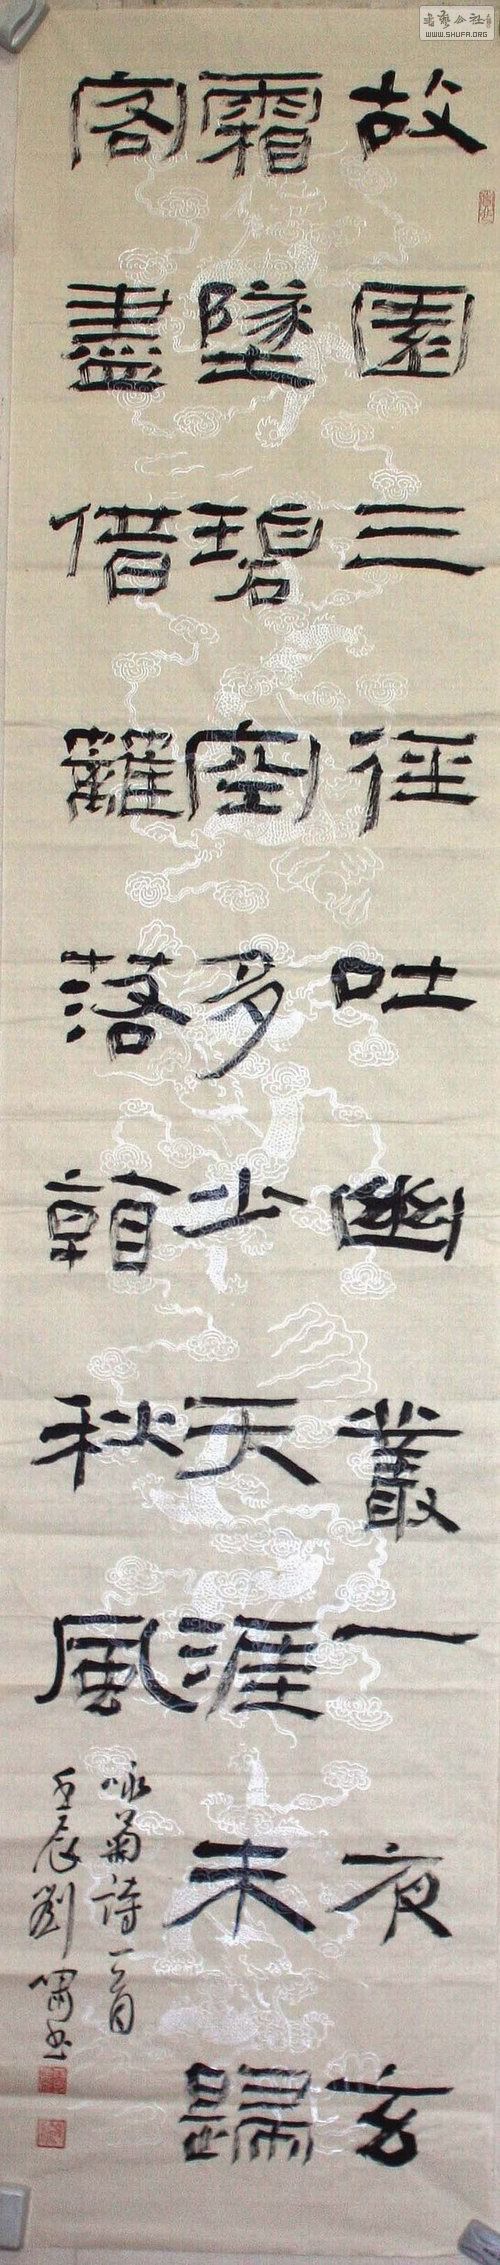 故園三徑吐幽叢一夜玄
霜墜碧空多少天涯未歸
客盡借籬落看秋風
咏菊詩一首
壬辰劉嘯書
書藝公社
WWW.SHUFA.ORG